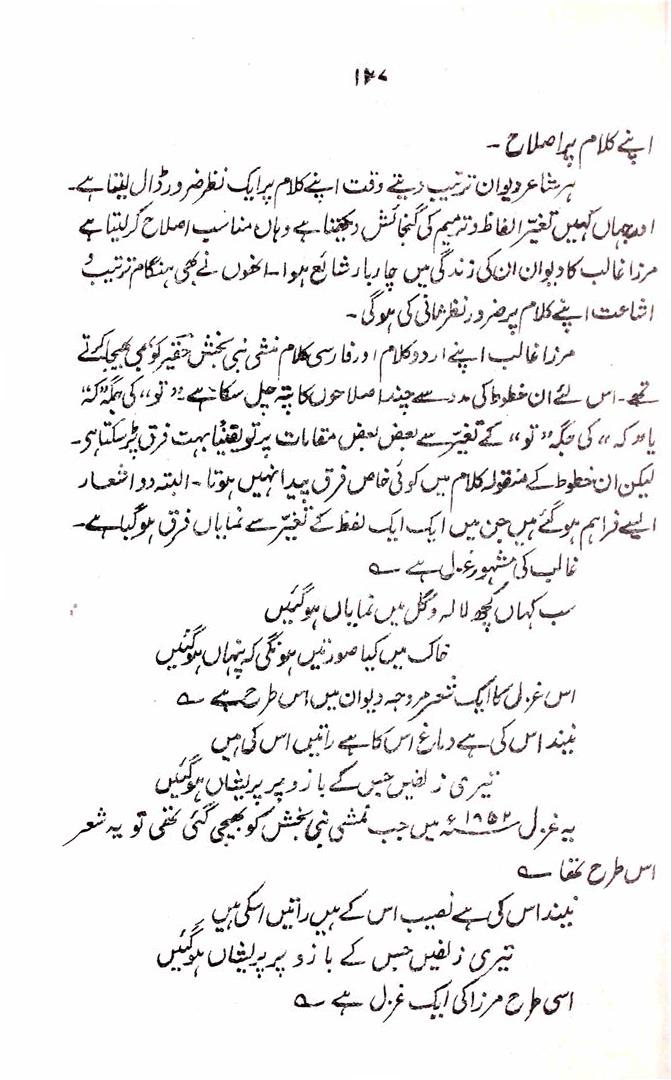 ۱۴۷
اپنے کلام پر اصلاح ۔
ہر شاعر دیوان ترتیب دیتے وقت اپنے کلام پر ایک نظر ضرور ڈال لیتا ہے۔
اور جہاں کہیں تغیّر الفاظ و ترمیم کی گنجائش دیکھتا ہے وہاں مناسب اصلاح کر لیتا ہے
مرزا غالب کا دیوان ان کی زندگی میں چار بار شایع ہوا ۔ انھوں نے بھی ہنگام ترتیب و
اشاعت اپنے کلام پر ضرور نظر ثانی کی ہو گی ۔
مرزا غالب اپنے اردو کلام اور فارسی کلام منشی نبی بخش حقیر کو بھی بھیجا کرتے
تھے ۔ اس لئے ان خطوط کی مدد سے چند اصلاحوں کا پتہ چل سکا ہے ۔ ”تو“ کی جگہ ”کہ“
یا ”کہ“ کی جگہ ”تو“ کے تغیّر سے بعض بعض مقامات پر تو یقیناً بہت فرق پڑ سکتا ہی۔
لیکن ان خطوط کے منقولہ کلام میں کوئی خاص فرق پیدا نہیں ہوتا ۔ البتہ دو اشعار
ایسے فراہم ہو گئے ہیں جن میں ایک ایک لفظ کے تغیّر سے نمایاں فرق ہو گیا ہے۔
غالب کی مشہور غزل ہے ؎
سب کہاں کچھ لالہ و گل میں نمایاں ہو گئیں
خاک میں کیا صورتیں ہونگی کہ پنہاں ہو گئیں
اس غزل کا ایک شعر مروجہ دیوان میں اس طرح ہے ؎
نیند اس کی ہے دماغ اس کا ہے راتیں اس کی ہیں
تیری زلفیں جس کے بازو پر پریشاں ہو گئیں
یہ غزل ۱۸۵۲ء میں جب منشی نبی بخش کو بھیجی گئی تھی تو یہ شعر
اس طرح تھا ؎
نیند اس کی ہے نصیب اس کے ہیں راتیں اسکی ہیں
تیری زلفیں جس کے بازو پر پریشاں ہو گئیں
اسی طرح مرزا کی ایک غزل ہے ؎